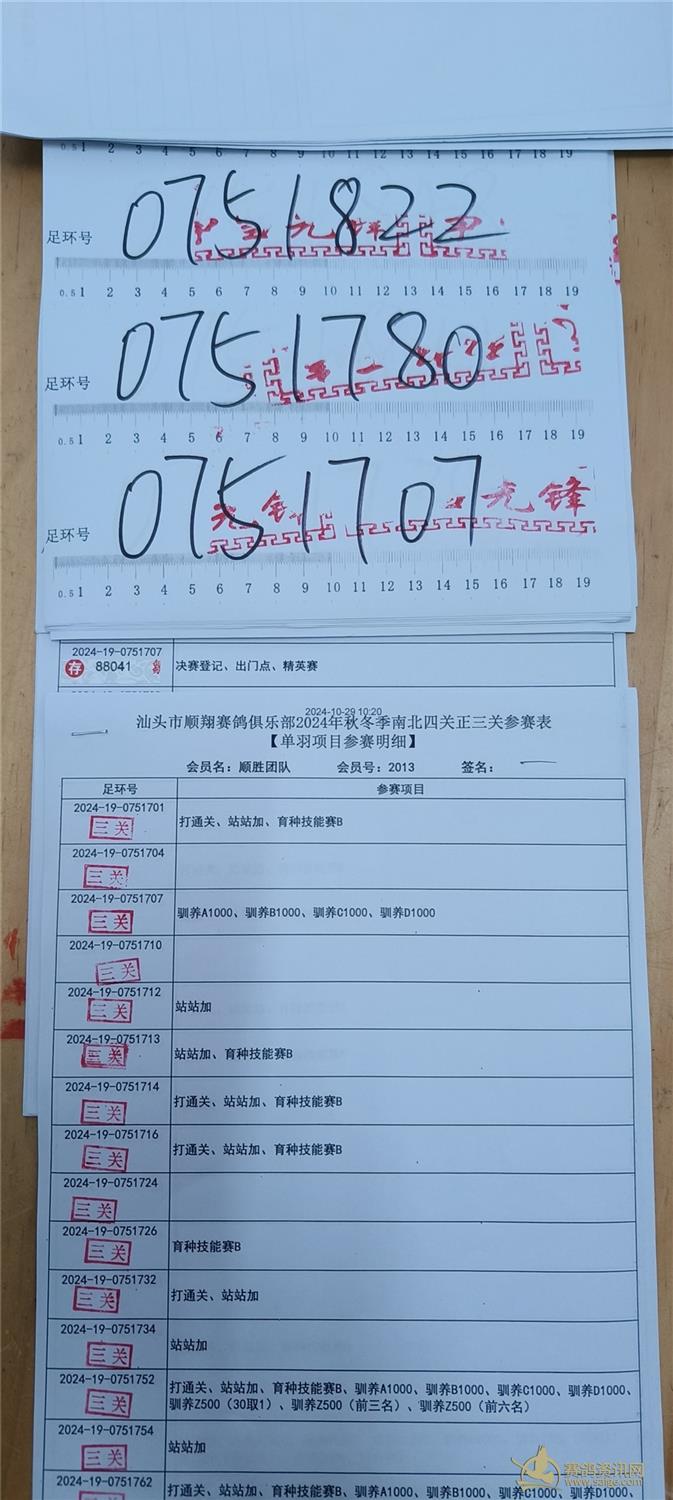 0.5 1 2 3 4 5 6 7 8 9 10 11 12 13 14 15 16 17 18 19
足环号 0751822
0.5 1 2 3 4 5 6 7 8 9 10 11 12 13 14 15 16 17 18 19
足环号 0751780
0.5 1 2 3 4 5 6 7 8 9 10 11 12 13 14 15 16 17 18 19
足环号 0751707
先锋
0.5 1 2 3 4 5 6 7 8 9 10 11 12 13 14 15 16 17 18 19
2024-19-0751707
存 88041 决赛登记、出门点、精英赛
2024-10-29 10:20
汕头市顺翔赛鸽俱乐部2024年秋冬季南北四关正三关参赛表
【单羽项目参赛明细】
会员名：顺胜团队 会员号：2013 签名：
足环号 参赛项目
2024-19-0751701
三关 打通关、站站加、育种技能赛B
2024-19-0751704
三关
2024-19-0751707
三关 驯养A1000、驯养B1000、驯养C1000、驯养D1000
2024-19-0751710
三关
2024-19-0751712
三关 站站加
2024-19-0751713
三关 站站加、育种技能赛B
2024-19-0751714
三关 打通关、站站加、育种技能赛B
2024-19-0751716
三关 打通关、站站加、育种技能赛B
2024-19-0751724
三关
2024-19-0751726
三关 育种技能赛B
2024-19-0751732
三关 打通关、站站加
2024-19-0751734
三关 站站加
2024-19-0751752 打通关、站站加、育种技能赛B、驯养A1000、驯养B1000、驯养C1000、驯养D1000、
三关 驯养Z500（30取1）、驯养Z500（前三名）、驯养Z500（前六名）
2024-19-0751754
三关 站站加
2024-19-0751762 打通关、站站加、育种技能赛B、驯养A1000、驯养B1000、驯养C1000、驯养D1000、
赛鸽资讯网
www.saige.com